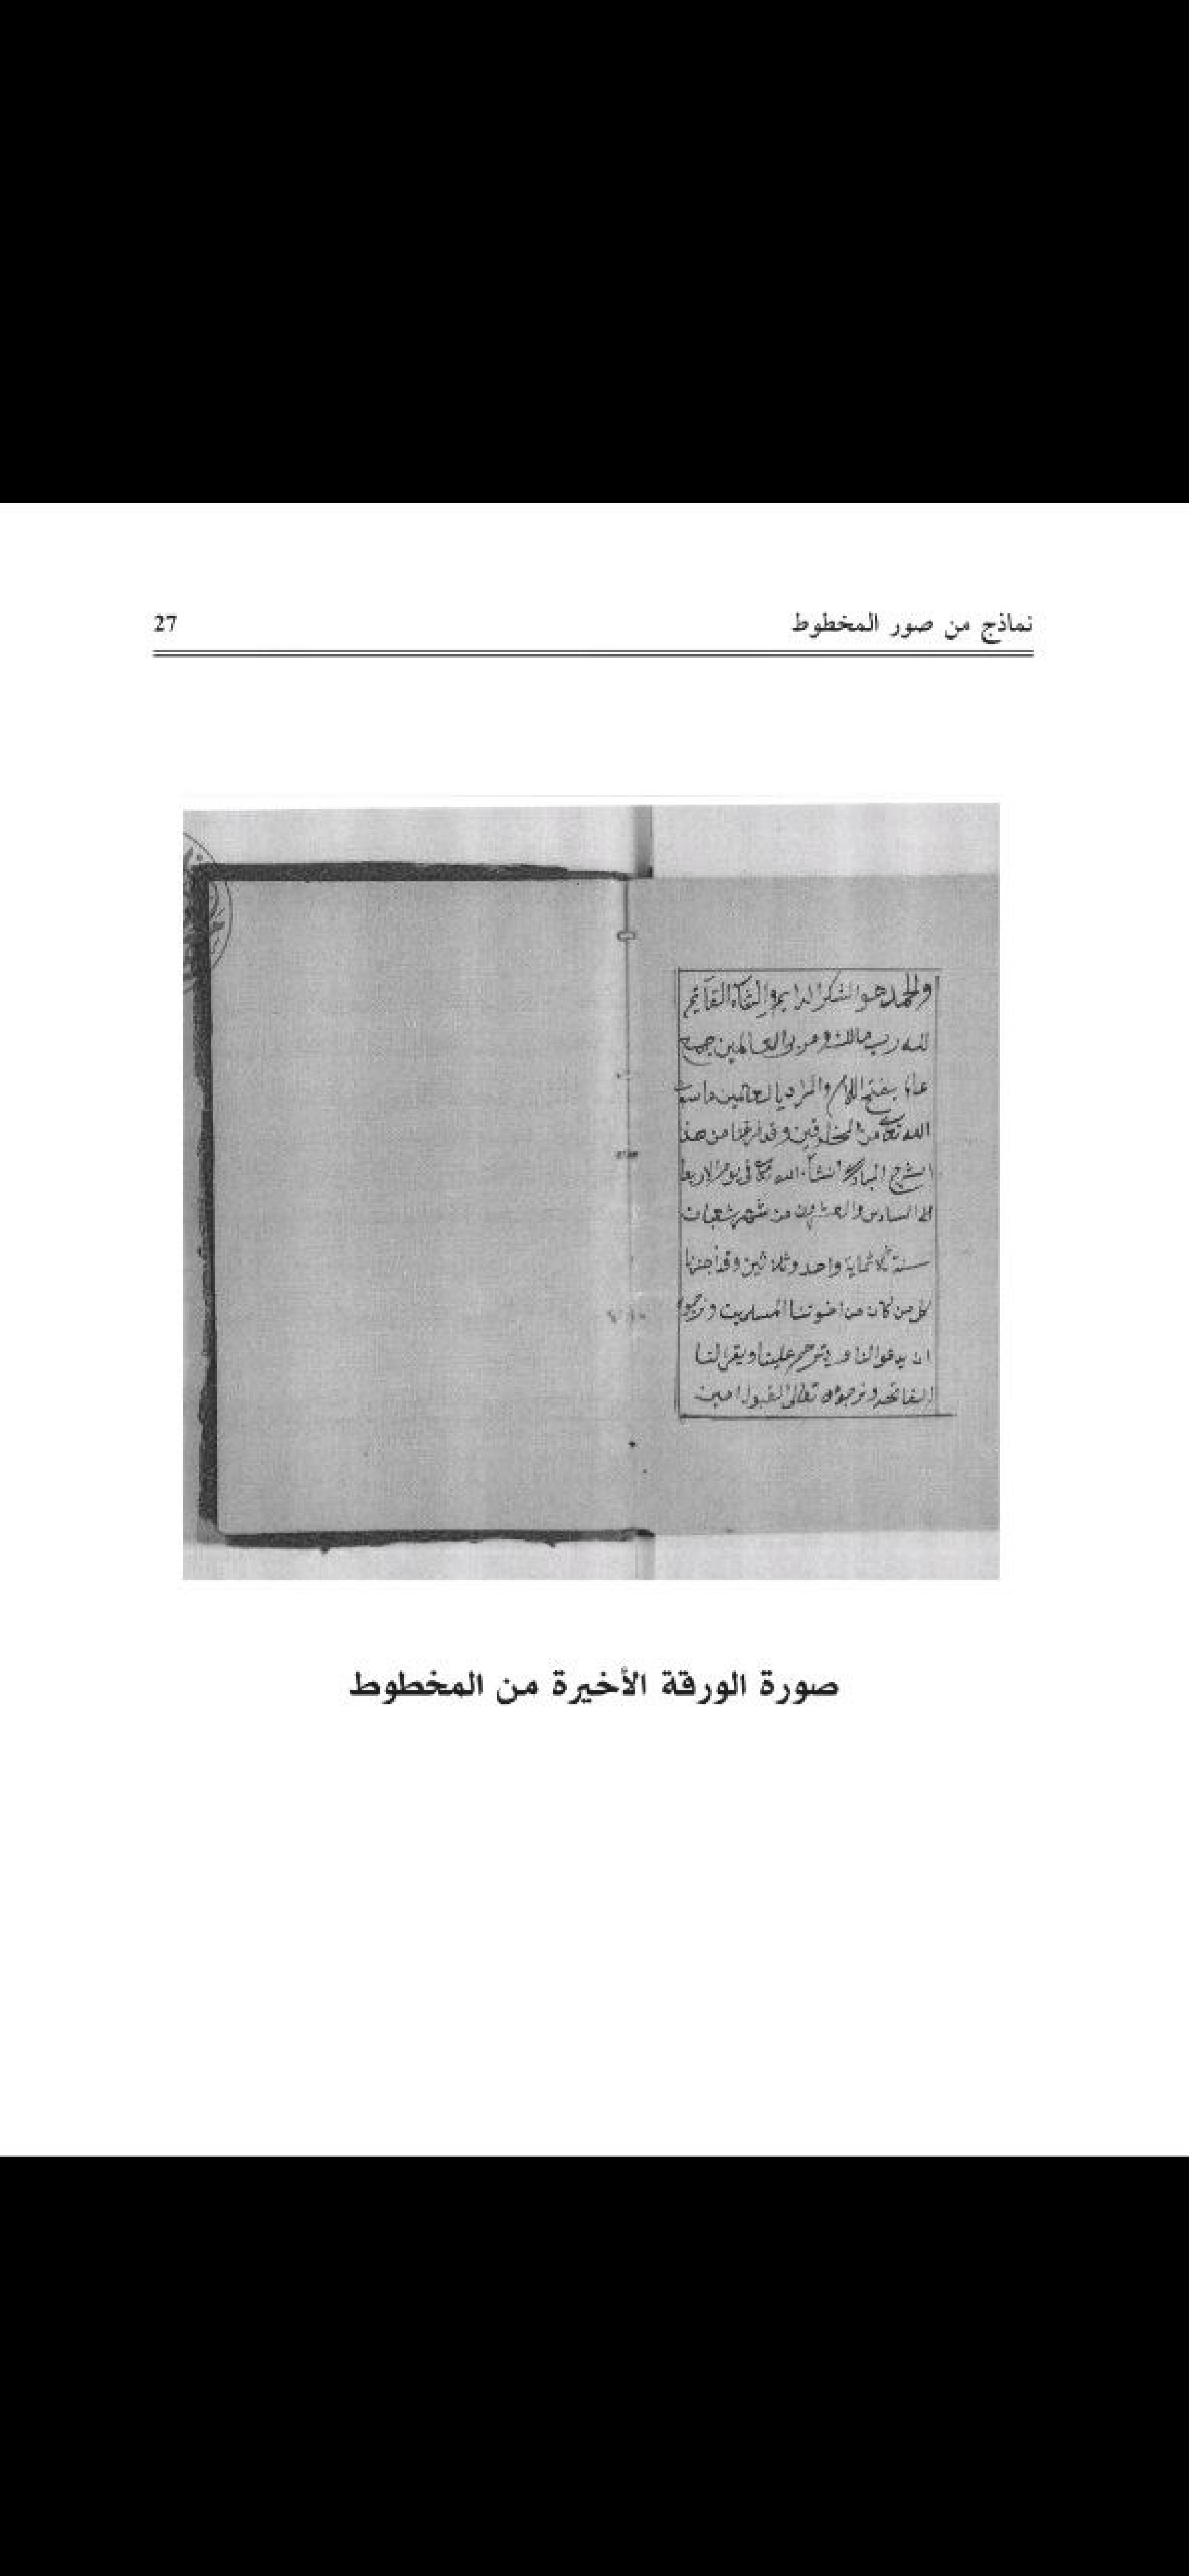 نماذج من صور المخطوط
27
والحمد هو الشكر الدايم والثنآء القآيم
لله رب مالك ومربي العالمين جمع
عالم بفتح اللام والمراد بالعالمين ماسوى
الله تعالى من المخلوقين وقد فرغنا من هذا
الشرح المبارك انشآء الله تعالى في يوم الاربعا
السادس والعشرون من شهر شعبان
سنة ثلاثماية واحد وثلاثين وقد اجزنا
كل من كان من اخوتنا المسلمين ونرجوا
ان يدعوا لنا ويترحم علينا ويقرا لنا
الفاتحه ونرجوا تعالى القبول امين
صورة الورقة الأخيرة من المخطوط